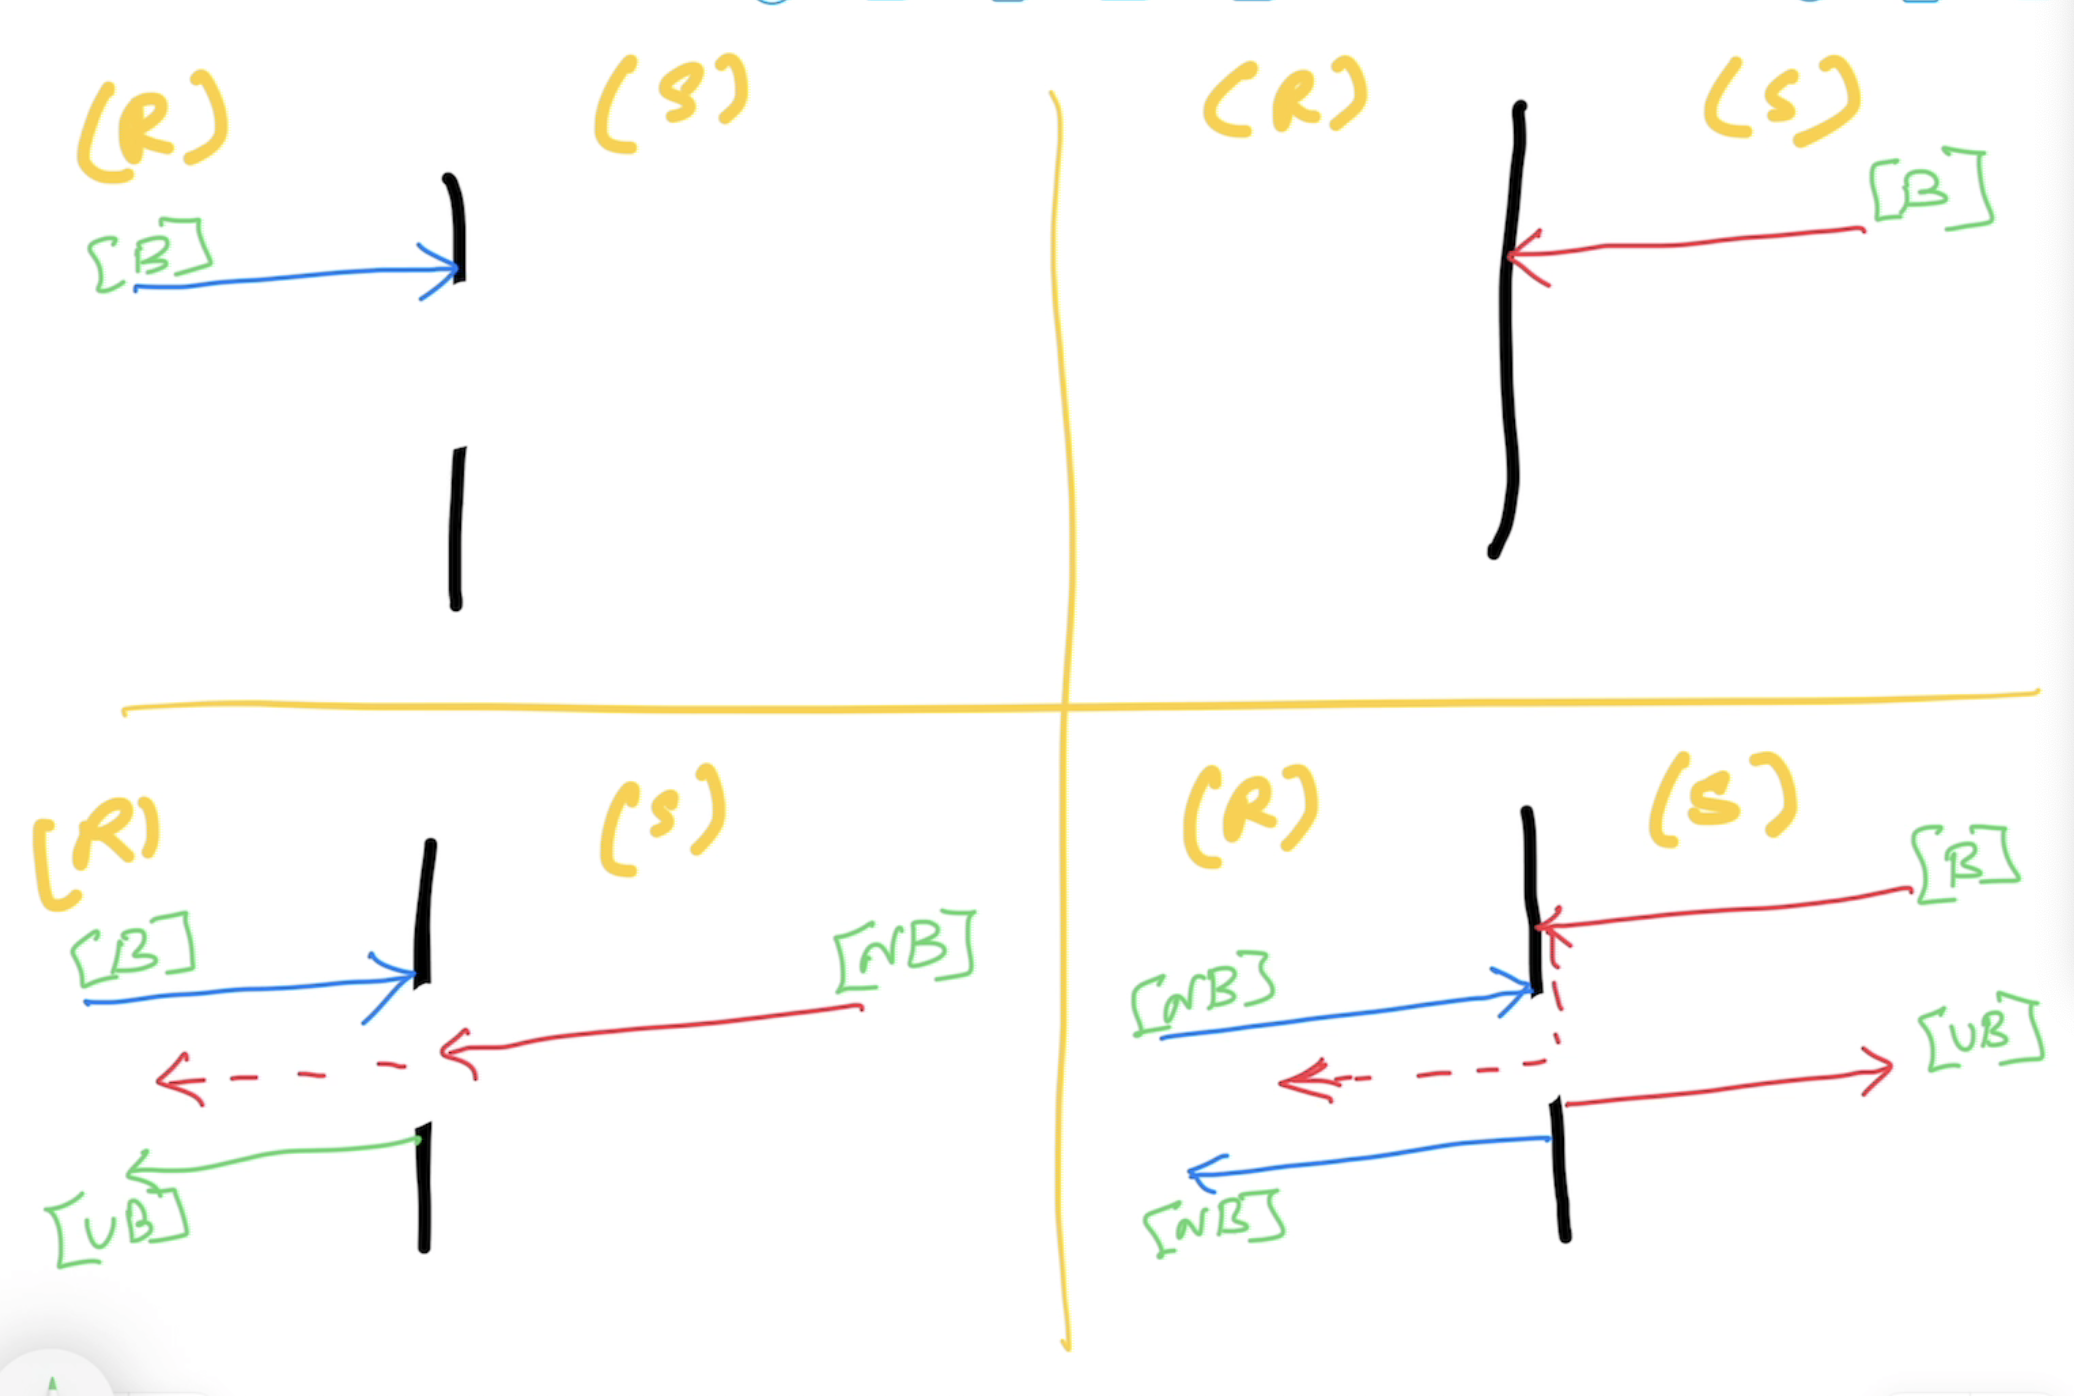 (R) (S)
[B]
(R) (S)
[B]
[R) (S)
[B] [NB]
[UB]
(R) (S)
[B]
[NB]
[UB]
[NB]